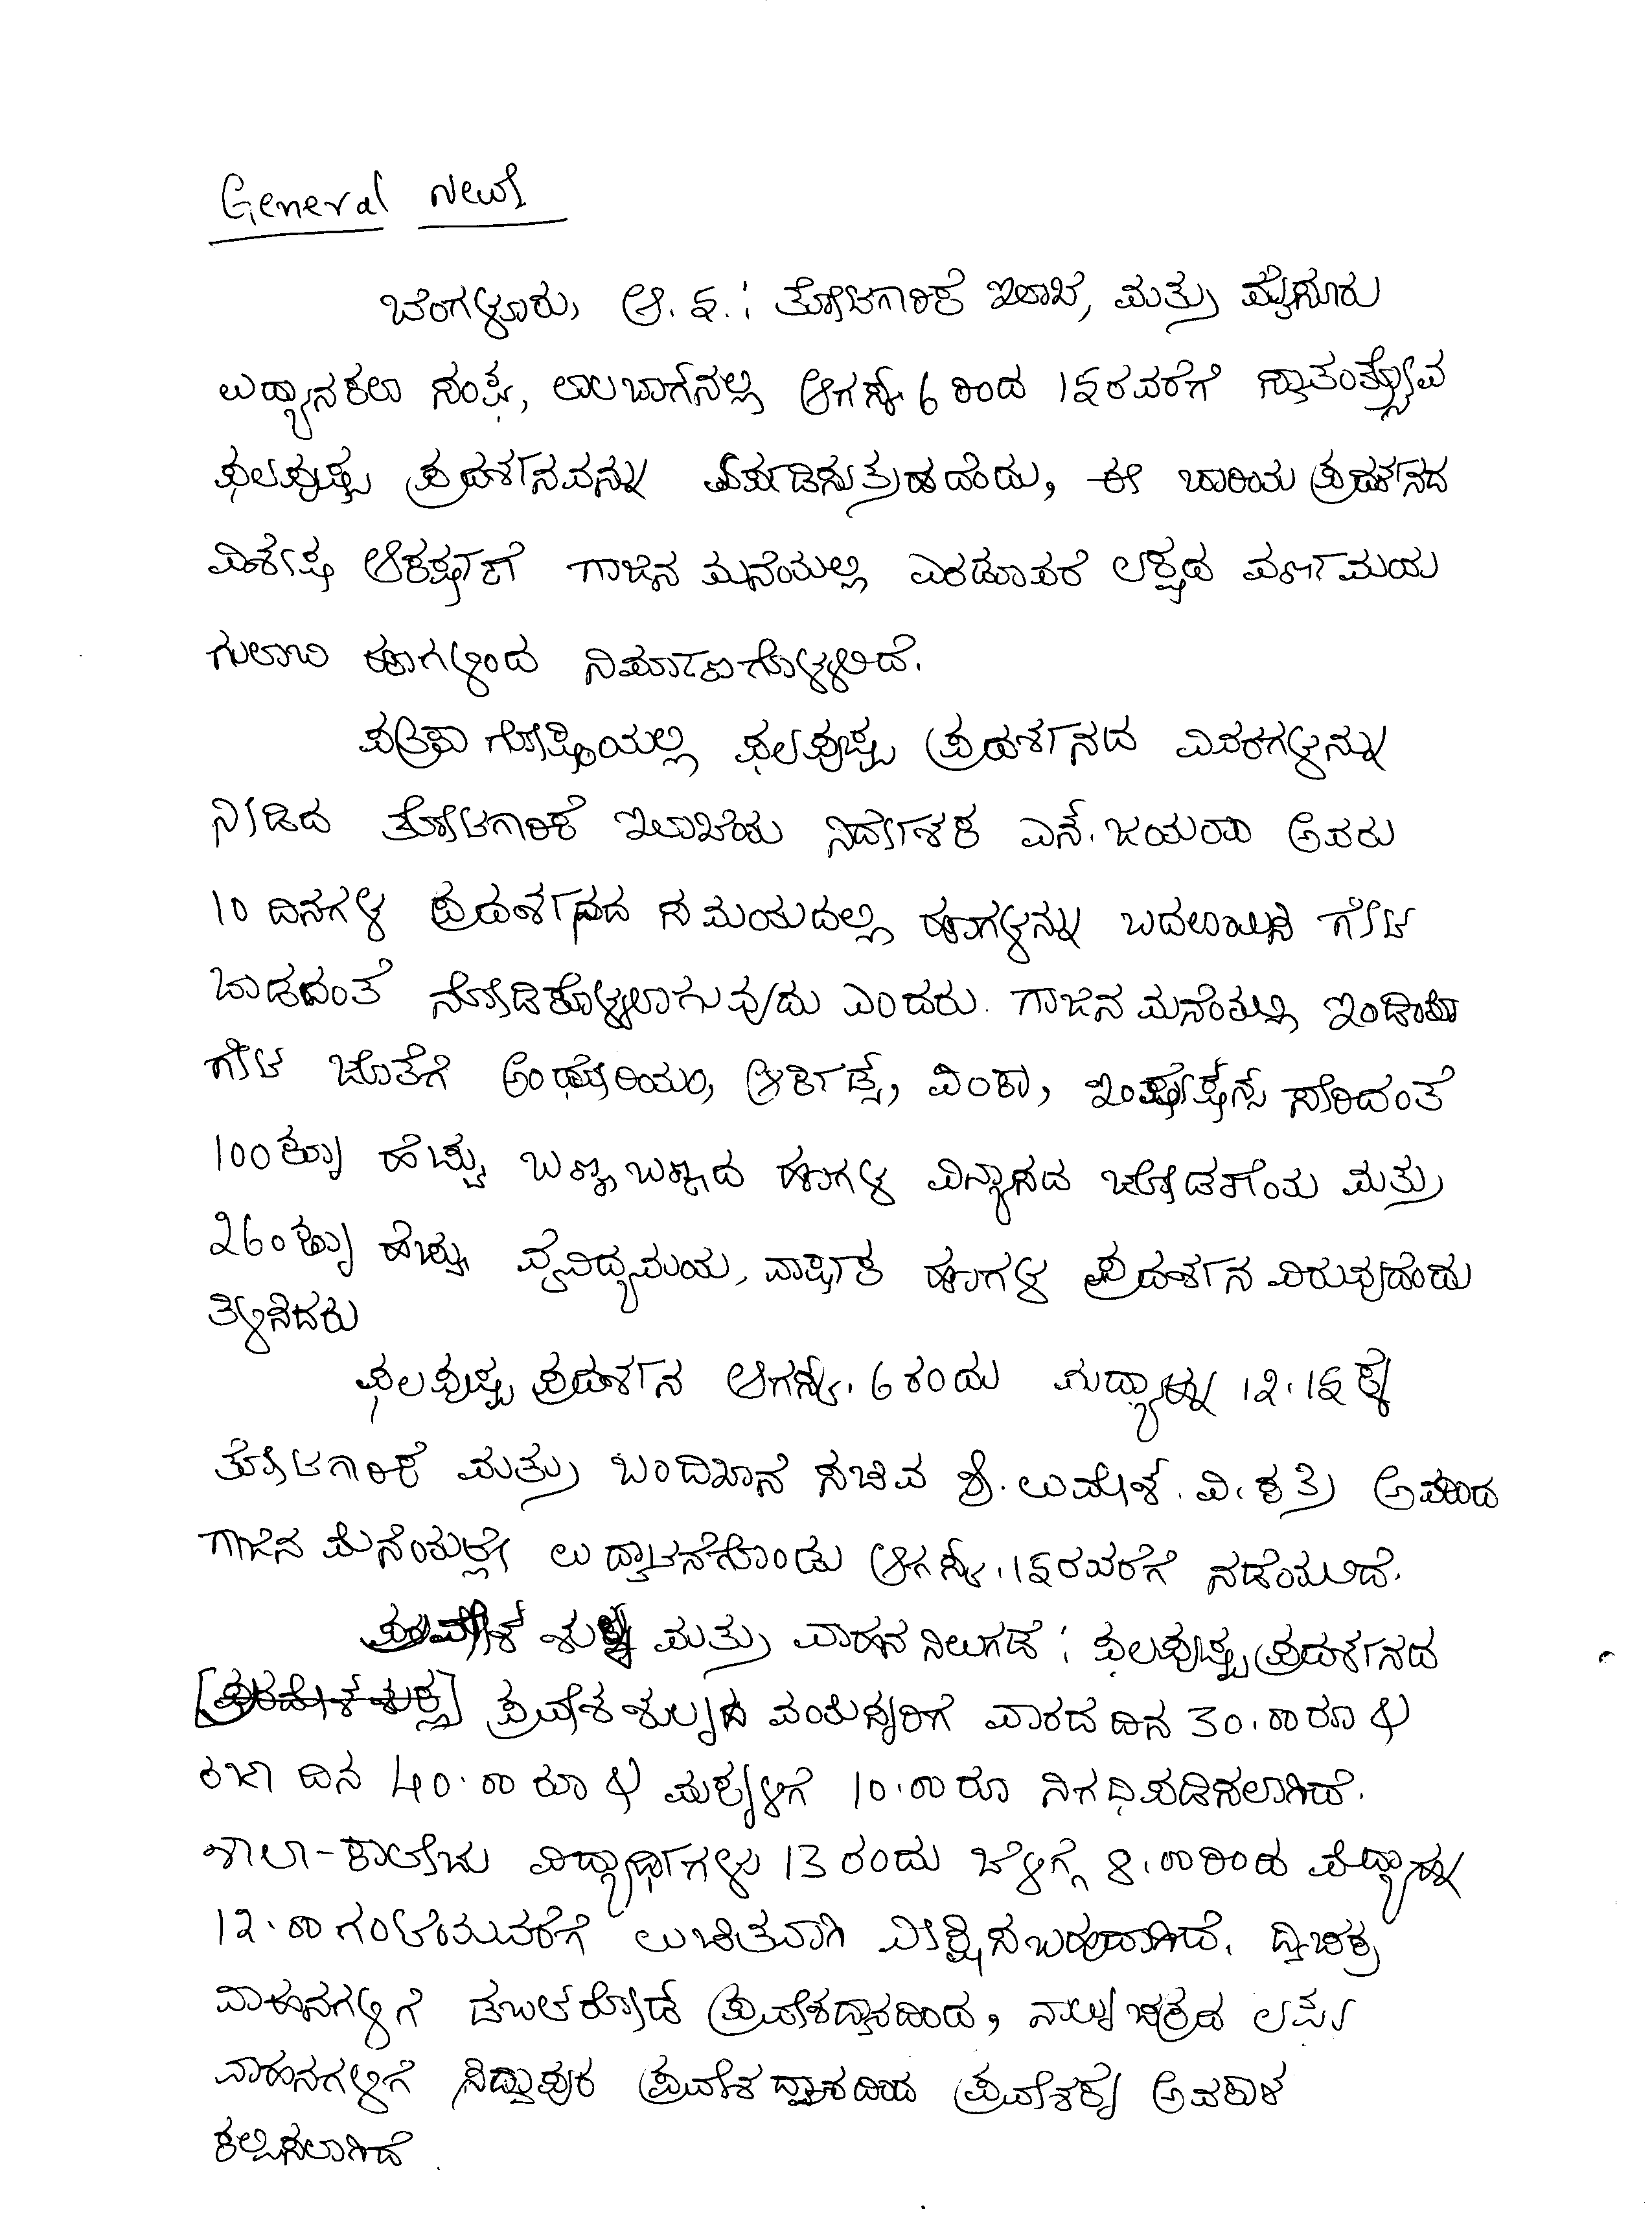 General News
ಬೆಂಗಳೂರು, ಆ. ೩. : ತೋಟಗಾರಿಕೆ ಇಲಾಖೆ, ಮತ್ತು ಮೈಸೂರು
ಉದ್ಯಾನಕಲಾ ಸಂಘ, ಲಾಲಬಾಗನಲ್ಲಿ ಆಗಸ್ಟ್ 6 ರಿಂದ 15ರವರೆಗೆ
ಫಲಪುಷ್ಪ ಪ್ರದರ್ಶನವನ್ನು ಈ ಬಾರಿಯ ಪ್ರದರ್ಶನದ
ವಿಶೇಷ ಆಕರ್ಷಣೆ ಗಾಜಿನ ಮನೆಯಲ್ಲಿ ಎರಡೂವರೆ ಲಕ್ಷದ ವರ್ಣಮಯ
ಗುಲಾಬಿ ಹೂಗಳಿಂದ ನಿರ್ಮಾಣಗೊಳ್ಳಲಿದೆ.
ಪತ್ರಿಕಾ ಗೋಷ್ಠಿಯಲ್ಲಿ ಫಲಪುಷ್ಪ ಪ್ರದರ್ಶನದ ವಿವರಗಳನ್ನು
ನೀಡಿದ ತೋಟಗಾರಿಕೆ ಇಲಾಖೆಯ ನಿರ್ದೇಶಕ ಎನ್. ಜಯರಾಂ ಅವರು
10 ದಿನಗಳ ಪ್ರದರ್ಶನದ ಸಮಯದಲ್ಲಿ ಹೂಗಳನ್ನು ಬದಲಾಯಿಸಿ ಗೇಟ
ಬಾಡದಂತೆ ನೋಡಿಕೊಳ್ಳಲಾಗುವುದು ಎಂದರು. ಗಾಜಿನ ಮನೆಯಲ್ಲಿ ಇಂಡಿಯಾ
ಗೇಟ ಜೊತೆಗೆ ಅಂಥೋರಿಯಂ, ಆರ್ಕಿಡ್ಸ್, ವಿಂಕಾ, ಇಂಪೇಷನ್ಸ್ ಸೇರಿದಂತೆ
100ಕ್ಕೂ ಹೆಚ್ಚು ಬಣ್ಣಬಣ್ಣದ ಹೂಗಳ ವಿನ್ಯಾಸದ ಜೋಡಣೆಯ ಮತ್ತು
260ಕ್ಕೂ ಹೆಚ್ಚು ವೈವಿಧ್ಯಮಯ, ವಾರ್ಷಿಕ ಹೂಗಳ ಪ್ರದರ್ಶನವಿರುವುದೆಂದು
ತ್ಳಿಸಿದರು
ಫಲಪುಷ್ಪ ಪ್ರದರ್ಶನ ಆಗಸ್ಟ್. 6 ರಂದು ಮಧ್ಯಾಹ್ನ 12.15 ಕ್ಕೆ
ತೋಟಗಾರಿಕೆ ಮತ್ತು ಬಂದಿಖಾನೆ ಸಚಿವ ಶ್ರೀ. ಉಮೇಶ. ವಿ. ಕತ್ತಿ ಅವರಿಂದ
ಗಾಜಿನ ಮನೆಯಲ್ಲೇ ಉದ್ಘಾಟನೆಗೊಂಡು ಆಗಸ್ಟ್. 15ರವರೆಗೆ ನಡೆಯಲಿದೆ.
ಪ್ರವೇಶ ಶುಲ್ಕ ಮತ್ತು ವಾಹನ ನಿಲುಗಡೆ : ಫಲಪುಷ್ಪ ಪ್ರದರ್ಶನದ
ಪ್ರವೇಶ ಶುಲ್ಕದ ವಯಸ್ಕರಿಗೆ ವಾರದ ದಿನ 30.00 ರೂ &
ರಜಾ ದಿನ 40.00 ರೂ & ಮಕ್ಕಳಿಗೆ 10.00ರೂ ನಿಗಧಿಪಡಿಸಲಾಗಿದೆ.
ಶಾಲಾ-ಕಾಲೇಜು ವಿದ್ಯಾರ್ಥಿಗಳು 13 ರಂದು ಬೆಳಿಗ್ಗೆ 8.00ರಿಂದ ಮಧ್ಯಾಹ್ನ
12.00 ಗಂಟೆಯವರೆಗೆ ಉಚಿತವಾಗಿ ವೀಕ್ಷಿಸಬಹುದಾಗಿದೆ. ದ್ವಿಚಕ್ರ
ವಾಹನಗಳಿಗೆ ಡಬಲ್‌ರೋಡ್ ಪ್ರವೇಶದ್ವಾರದಿಂದ, ನಾಲ್ಕು ಚಕ್ರದ ಲಘು
ವಾಹನಗಳಿಗೆ ಸಿದ್ದಾಪುರ ಪ್ರವೇಶ ದ್ವಾರದಿಂದ ಪ್ರವೇಶಕ್ಕೆ ಅವಕಾಶ
ಕಲ್ಪಿಸಲಾಗಿದೆ.